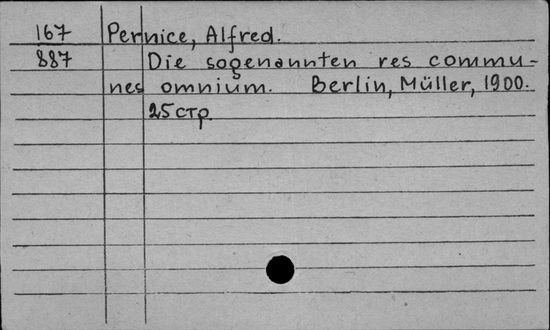 167 Pernice, Alfred.
887 Die sogenannten res commu-
nes omnium. Berlin, Müller, 1900.
25 стр.